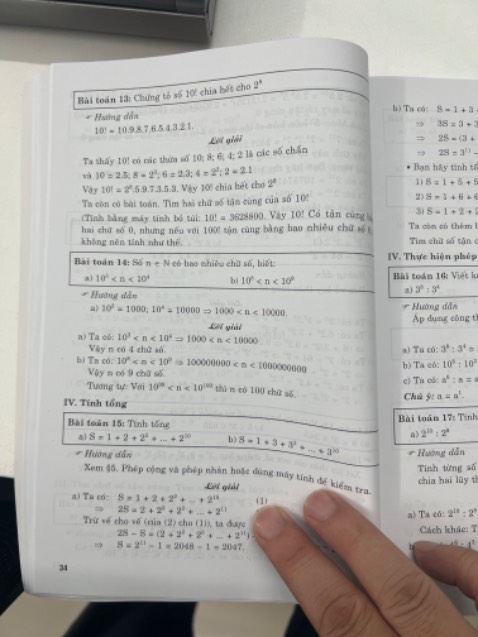 Bài toán 13: Chứng tỏ số 10! chia hết cho 2⁸
Hướng dẫn
10! = 10.9.8.7.6.5.4.3.2.1.
Lời giải
Ta thấy 10! có các thừa số 10; 8; 6; 4; 2 là các số chẵn
và 10 = 2.5; 8 = 2³; 6 = 2.3; 4 = 2²; 2 = 2.1
Vậy 10! = 2⁸.5.9.7.3.5.3. Vậy 10! chia hết cho 2⁸
Ta còn có bài toán. Tìm hai chữ số tận cùng của số 10!
(Tính bằng máy tính bỏ túi: 10! = 3628800. Vậy 10! Có tận cùng là
hai chữ số 0, nhưng nếu với 100! tận cùng bằng bao nhiêu chữ số
không nên tính như thế.
Bài toán 14: Số n ∈ N có bao nhiêu chữ số, biết:
a) 10³ < n < 10⁴ b) 10⁸ < n < 10⁹
Hướng dẫn
a) 10³ = 1000; 10⁴ = 10000 ⇒ 1000 < n < 10000.
Lời giải
a) Ta có: 10³ < n < 10⁴ ⇒ 1000 < n < 10000
Vậy n có 4 chữ số.
b) Ta có: 10⁸ < n < 10⁹ ⇒ 100000000 < n < 1000000000
Vậy n có 9 chữ số.
Tương tự: Với 10⁹⁹ < n < 10¹⁰⁰ thì n có 100 chữ số.
IV. Tính tổng
Bài toán 15: Tính tổng
a) S = 1 + 2 + 2² + ... + 2¹⁰ b) S = 1 + 3 + 3² + ... + 3¹⁰
Hướng dẫn
Xem §5. Phép cộng và phép nhân hoặc dùng máy tính để kiểm tra.
Lời giải
a) Ta có: S = 1 + 2 + 2² + ... + 2¹⁰ (1)
⇒ 2S = 2 + 2² + 2³ + ... + 2¹¹
Trừ vế cho vế (của (2) cho (1)), ta được
2S – S = (2 + 2² + 2³ + ... + 2¹¹)
⇒ S = 2¹¹ – 1 = 2048 – 1 = 2047.
34
b) Ta có: S = 1 + 3
⇒ 3S = 3 +
⇒ 2S = (3 +
⇒ 2S = 3¹¹ –
Bạn hãy tính tổ
1) S = 1 + 5 + 5
2) S = 1 + 6 + 6
3) S = 1 + 2 +
Ta còn có thêm
Tìm chữ số tận c
IV. Thực hiện phép
Bài toán 16: Viết k
a) 3⁸ : 3⁴
Hướng dẫn
Áp dụng công t
a) Ta có: 3⁸ : 3⁴ =
b) Ta có: 10⁸ : 10²
c) Ta có: a⁶ : a = a
Chú ý: a = a¹.
Bài toán 17: Tính
a) 2¹⁰ : 2⁸
Hướng dẫn
Tính từng số
chia hai lũy t
a) Ta có: 2¹⁰ : 2⁸
Cách khác: T